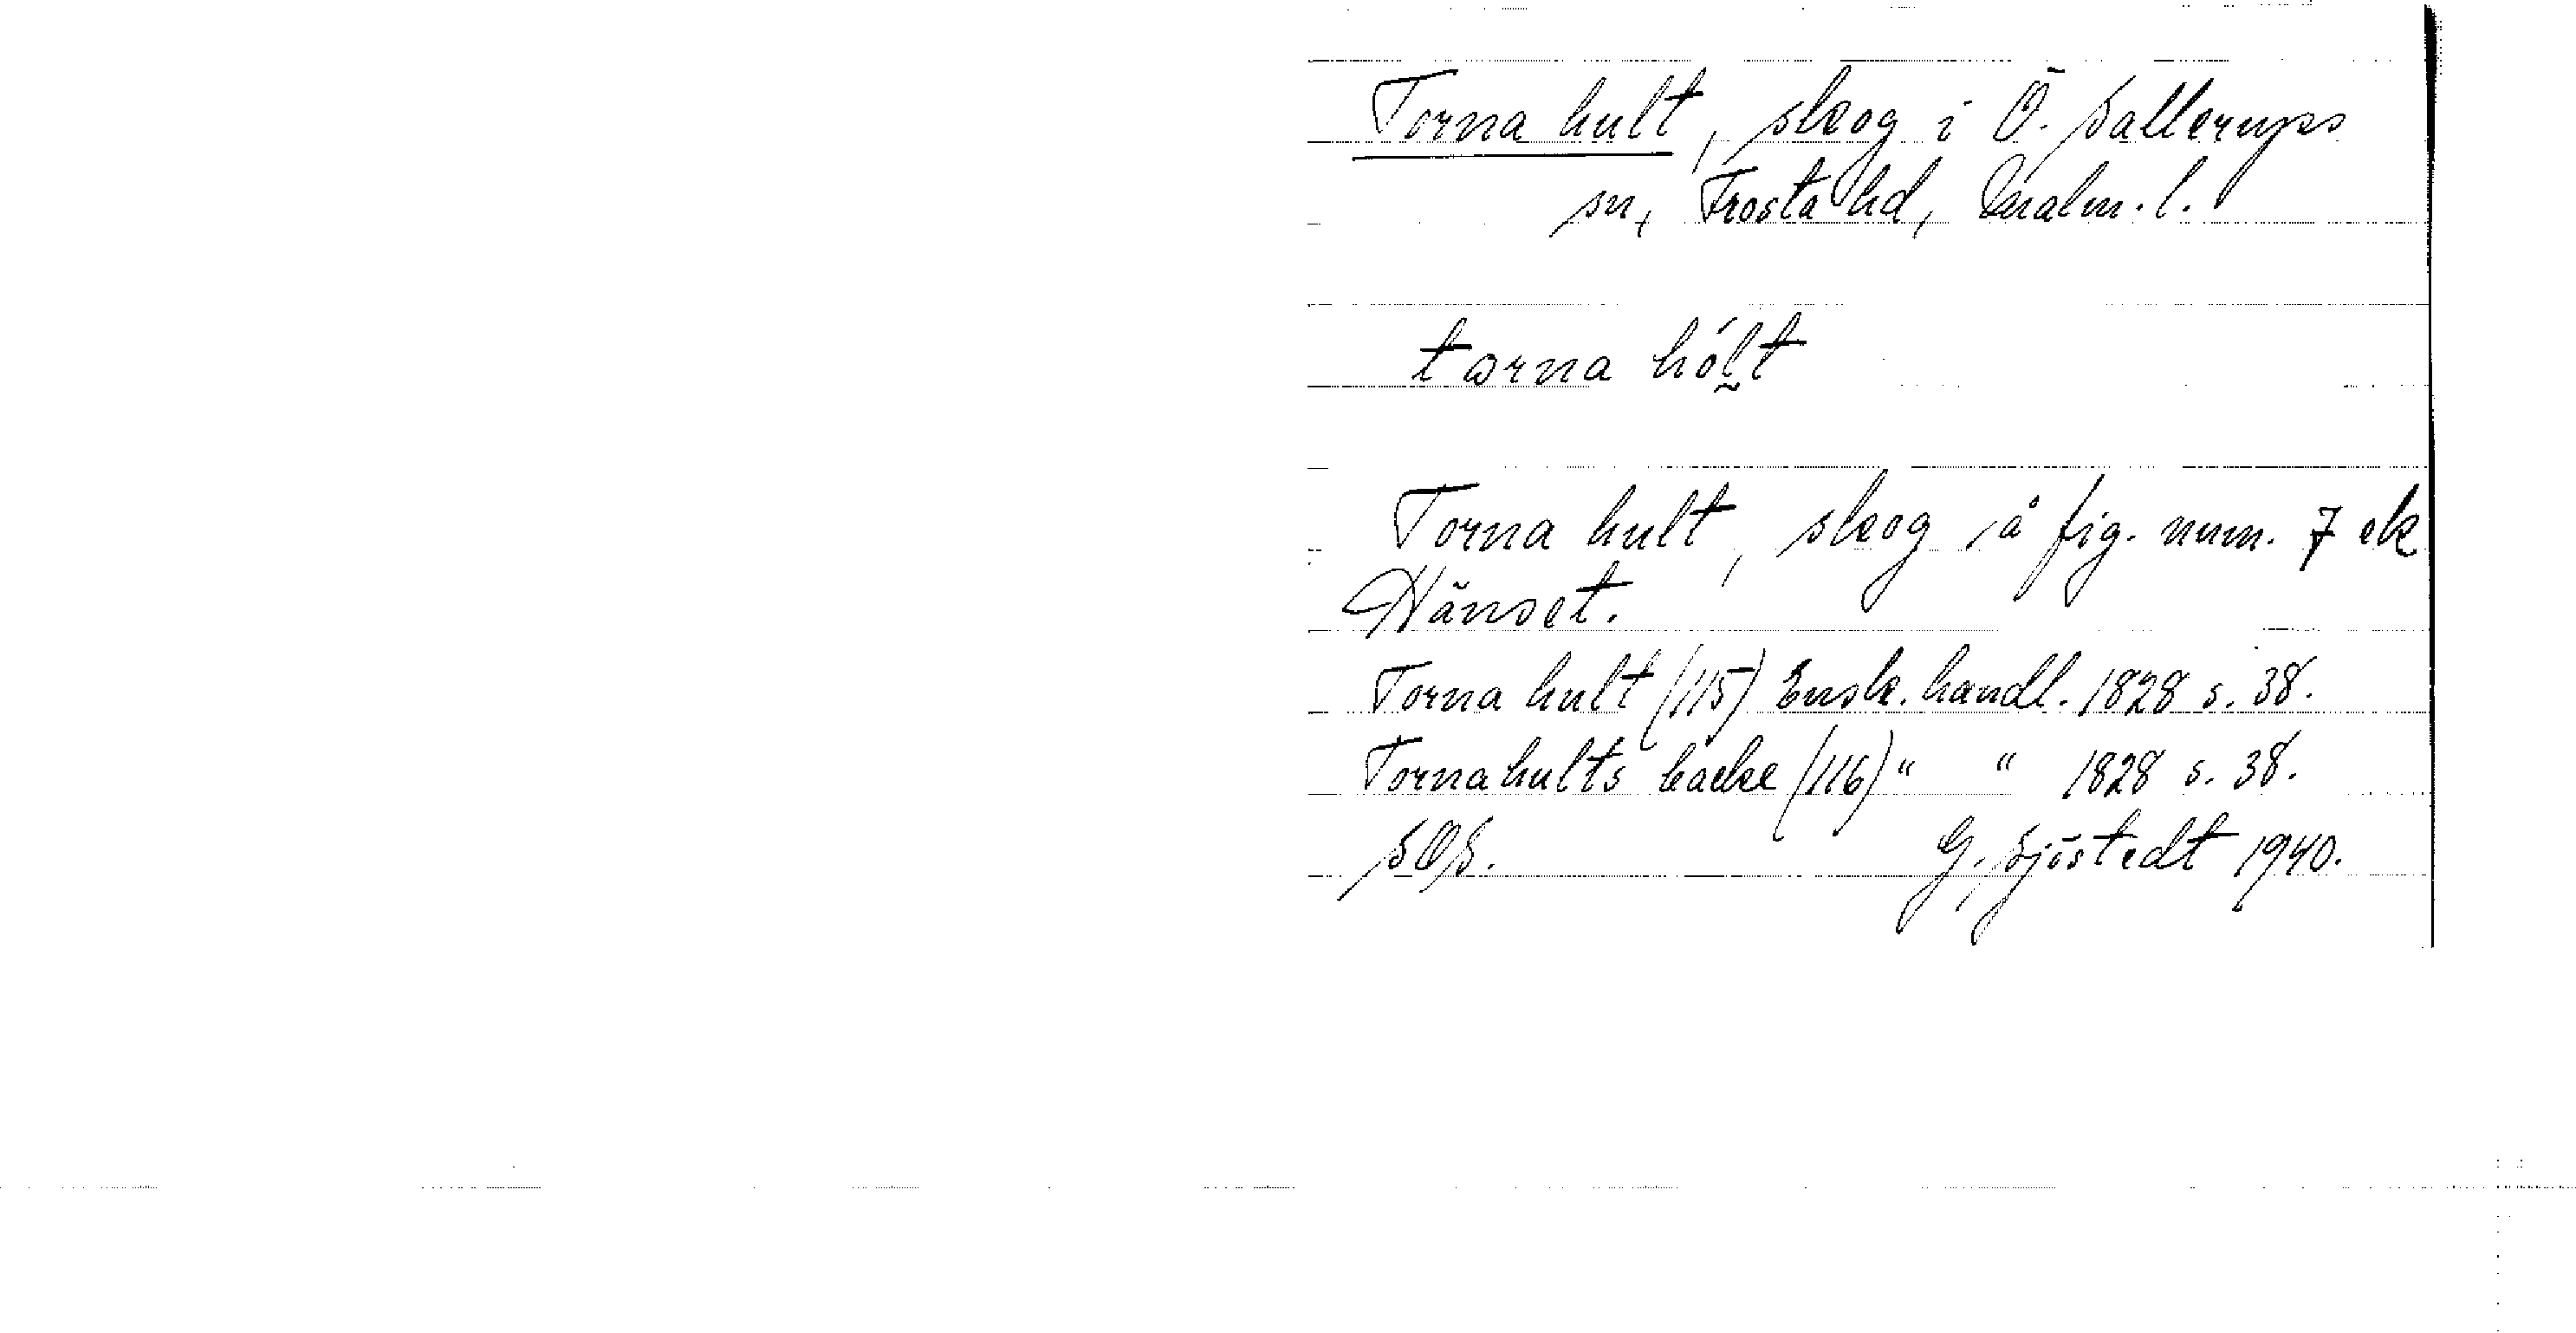 Torna hult, skog i Ö. Sallerups
sn, Frosta hd, Malm. l.
torna hólt
Torna hult, skog å fig. num. 7 ek
Hänset.
Torna hult (115) Ensk. handl. 1828 s. 38.
Tornahults backe (116) " " 1828 s. 38.
SOS. G. Sjöstedt 1940.